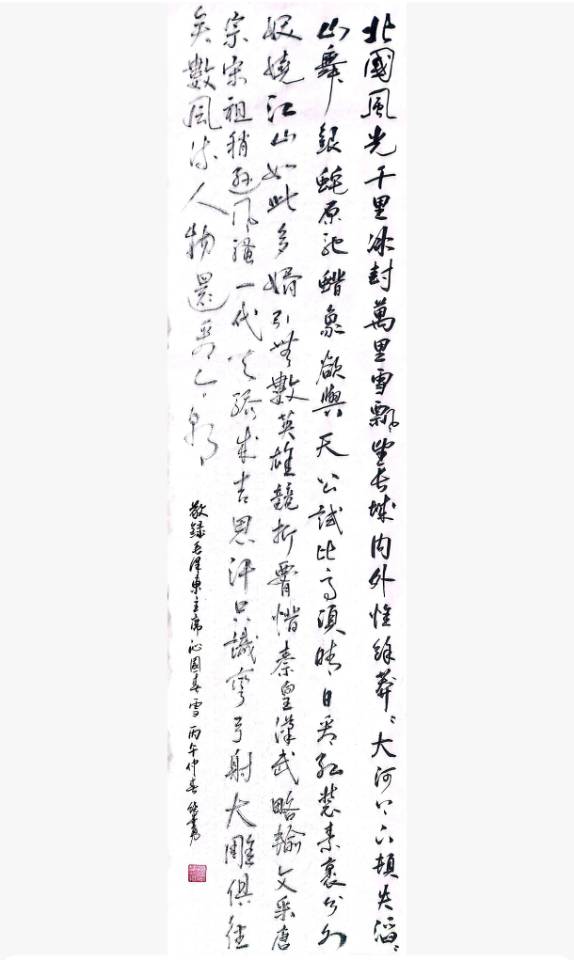 北國風光千里冰封萬里雪飄望長城內外惟餘莽々大河上下頓失滔々
山舞銀蛇原馳蜡象欲與天公試比高須晴日看紅裝素裹分外
妖嬈江山如此多嬌引無數英雄競折腰惜秦皇漢武略輸文采唐
宗宋祖稍遜風騷一代天驕成吉思汗只識彎弓射大雕俱往
矣數風流人物還看今朝
敬錄毛澤東主席沁園春雪丙午仲春